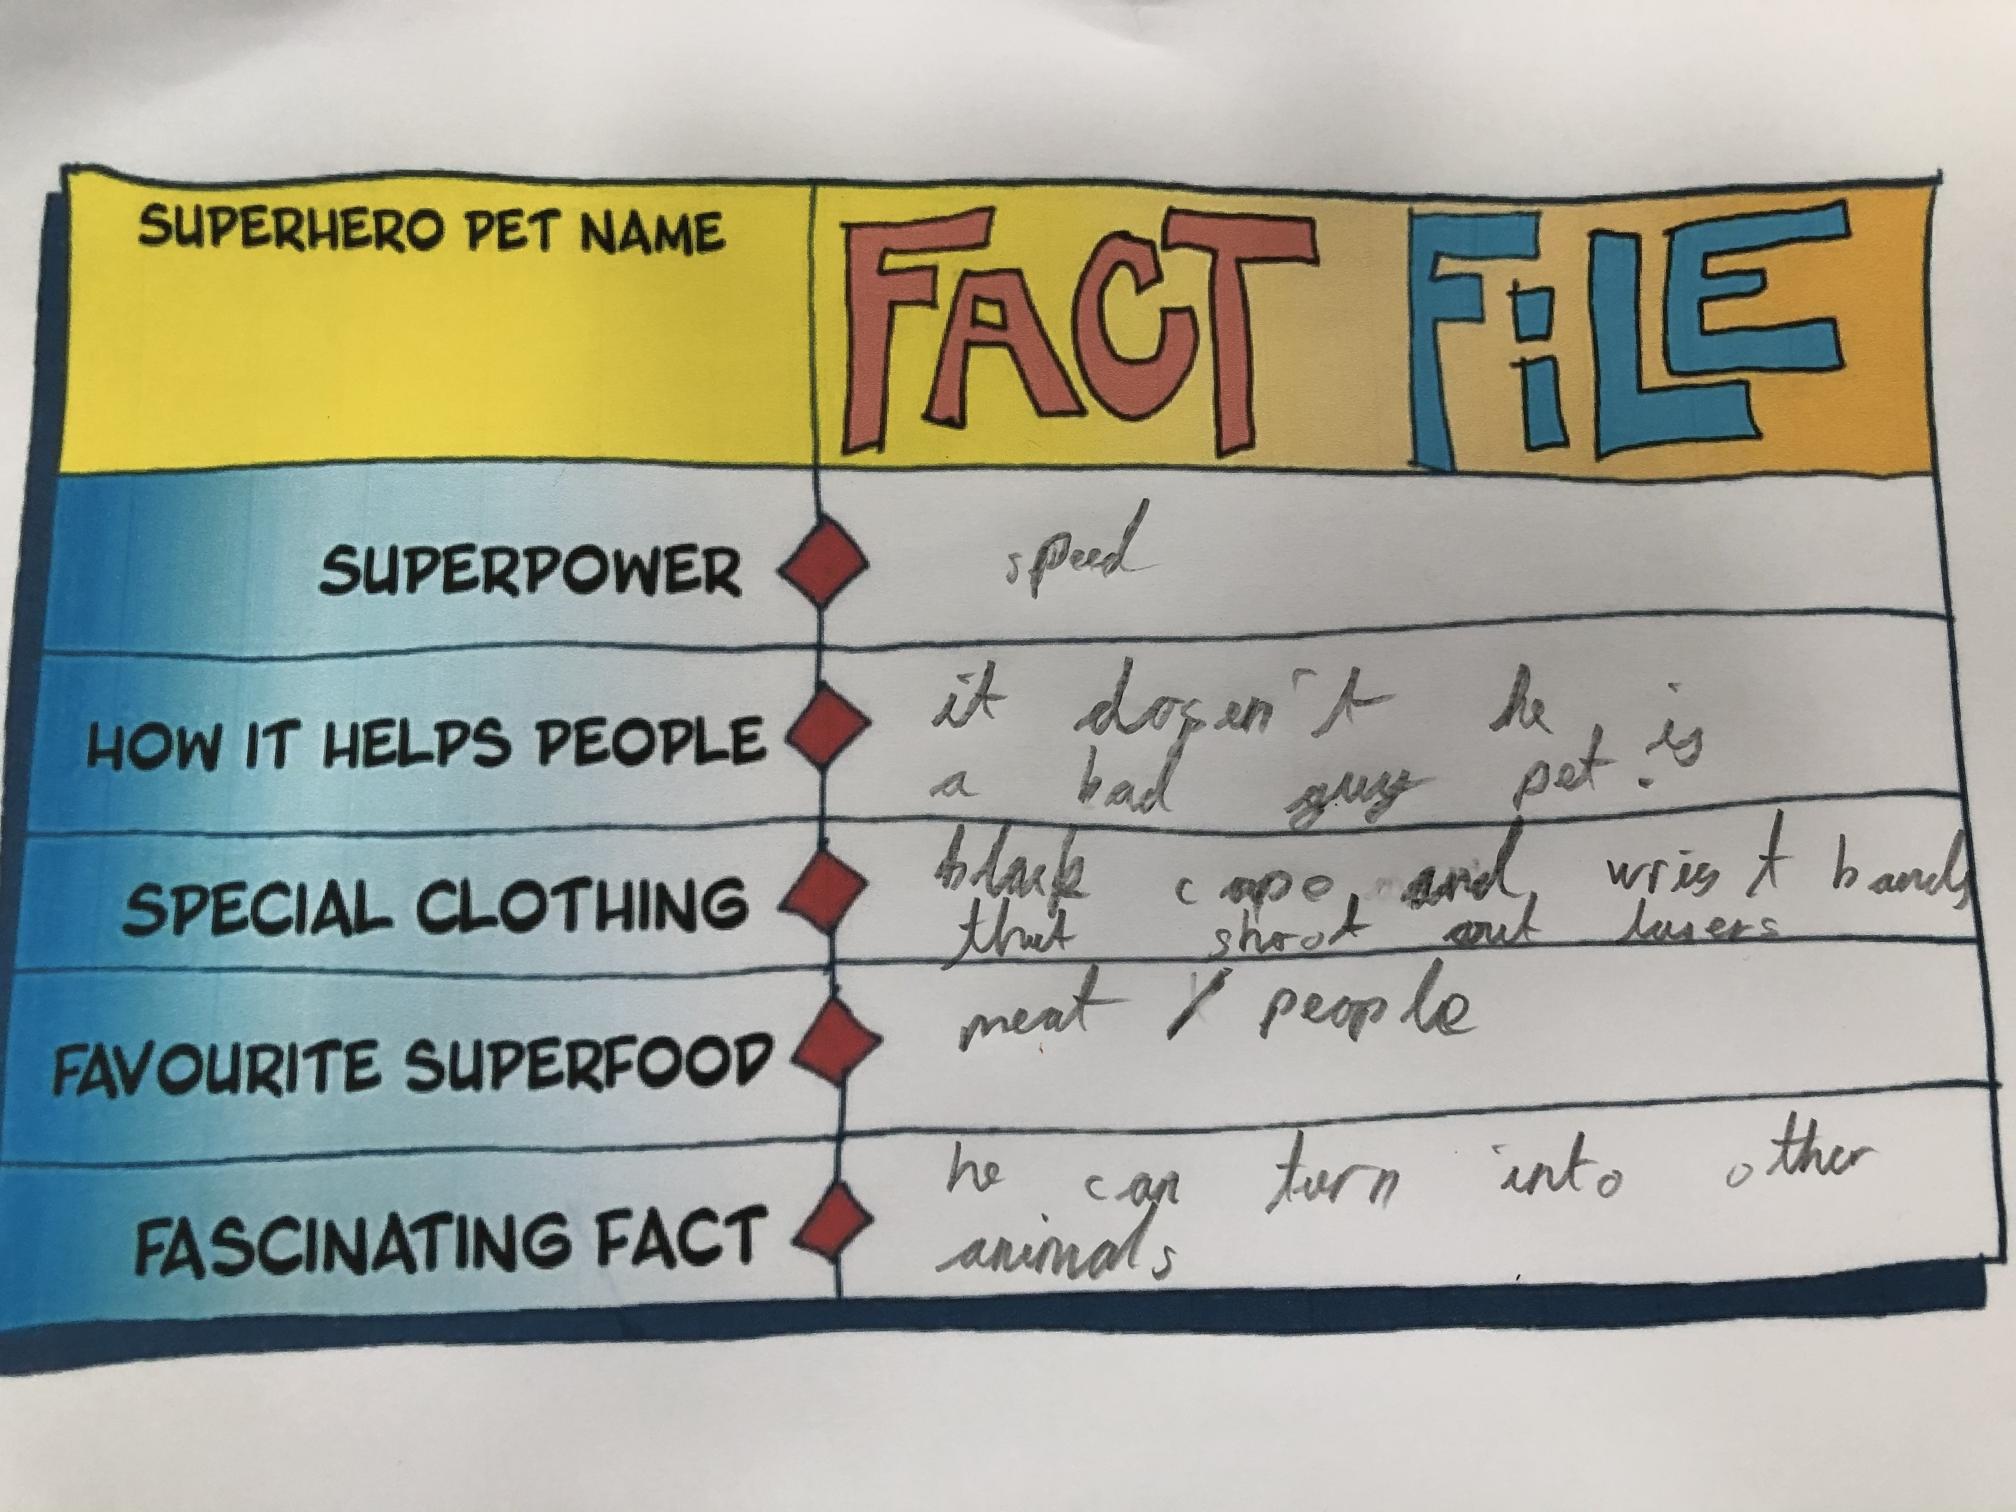 SUPERHERO PET NAME
FACT FILE
SUPERPOWER
speed
HOW IT HELPS PEOPLE
it dosen't he is
a bad guy pet.
SPECIAL CLOTHING
black cape and wrist bands
that shoot out lasers
FAVOURITE SUPERFOOD
meat / people
FASCINATING FACT
he can turn into other
animals